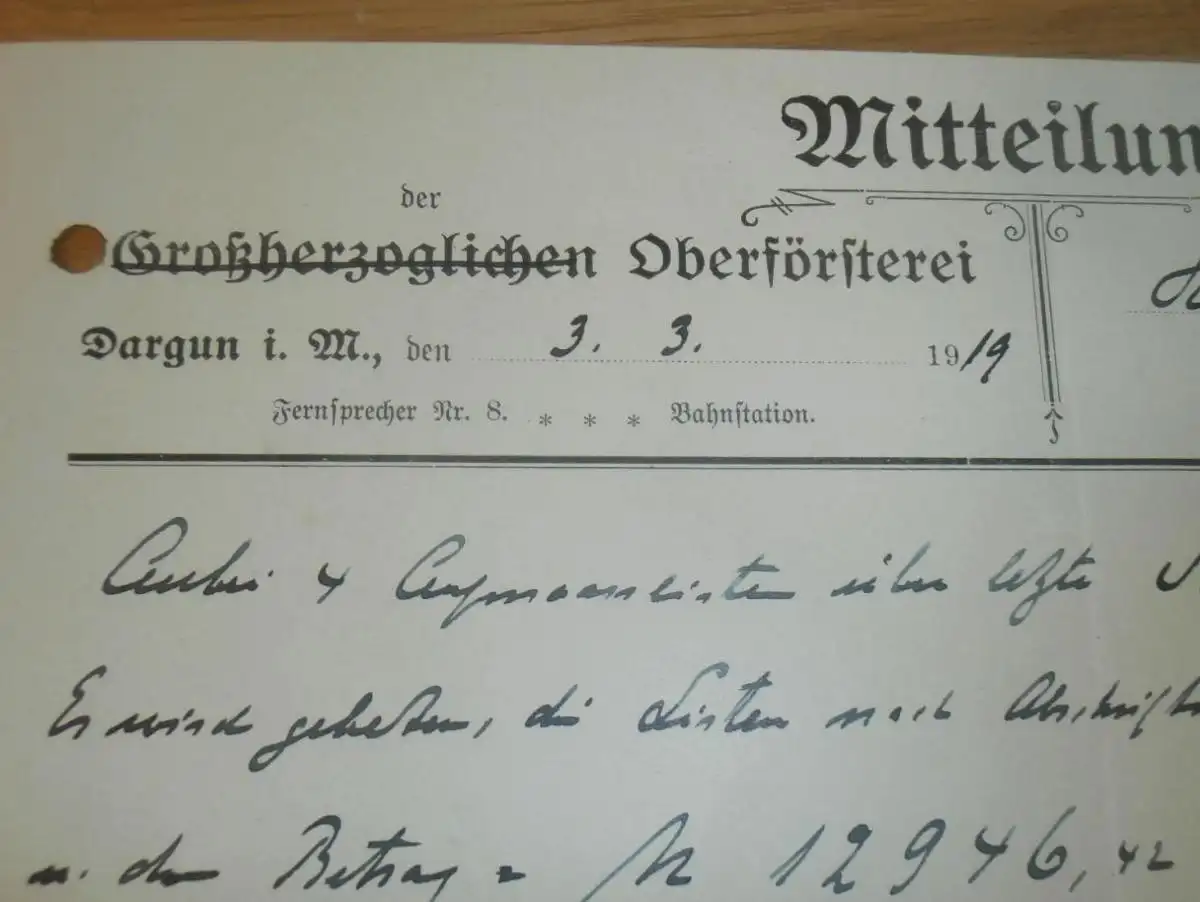 Mitteilun
der
Großherzoglichen Oberförsterei
Dargun i. M., den 3. 3. 1919
Fernsprecher Nr. 8. * * * Bahnstation.
Anbei 4 Aufmasslisten über letzte
Es wird gebeten, die Listen nach Abschrift
u. den Betrag = M 12946,42